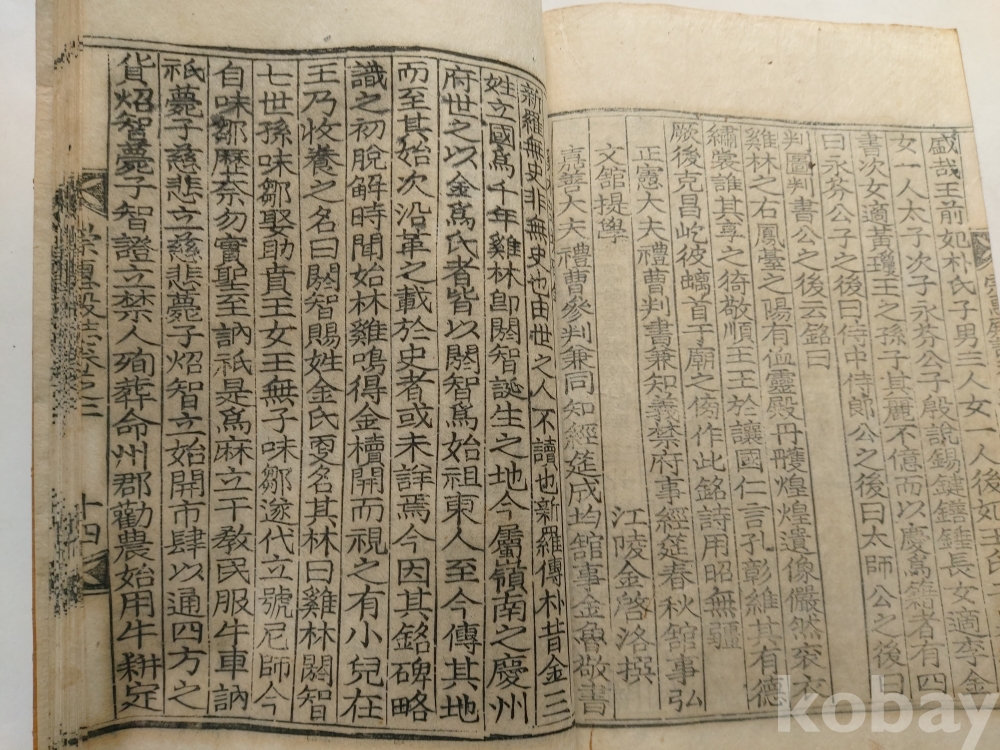 盛哉王前妃朴氏子男三人女一人後妃王氏
女一人太子次子永芬公子殷說錫鍵鐥鏶長女適李金
書次女適黃瓊王之孫子其麗不億而以慶爲籍者有四
曰永芬公子之後曰侍中侍郎公之後曰太師公之後曰
判圖判書公之後云銘曰
雞林之右鳳臺之陽有侐靈殿丹雘煌煌遺像儼然袞衣
繡裳誰其尊之猗敬順王王於讓國仁言孔彰維其有德
厥後克昌屹彼螭首于廟之傍作此銘詩用昭無疆
正憲大夫禮曹判書兼知義禁府事經筵春秋舘事弘
文舘提學 江陵金啓洛撰
嘉善大夫禮曹參判兼同知經筵成均舘事金魯敬書
新羅無史非無史也由世之人不讀也新羅傳朴昔金三
姓立國爲千年雞林卽閼智誕生之地今屬嶺南之慶州
府世之以金爲氏者皆以閼智爲始祖東人至今傳其地
而至其始次沿革之載於史者或未詳焉今因其銘碑略
識之初脫解時聞始林雞鳴得金櫝開而視之有小兒在
王乃收養之名曰閼智賜姓金氏更名其林曰雞林閼智
七世孫味鄒娶助賁王女王無子味鄒遂代立號尼師今
自味鄒歷奈勿實聖至訥祇是爲麻立干敎民服牛車訥
祇薨子慈悲立慈悲薨子炤智立始開市肆以通四方之
貨炤智薨子智證立禁人殉葬命州郡勸農始用牛耕定
崇惠殿誌卷之三
十四
kobay